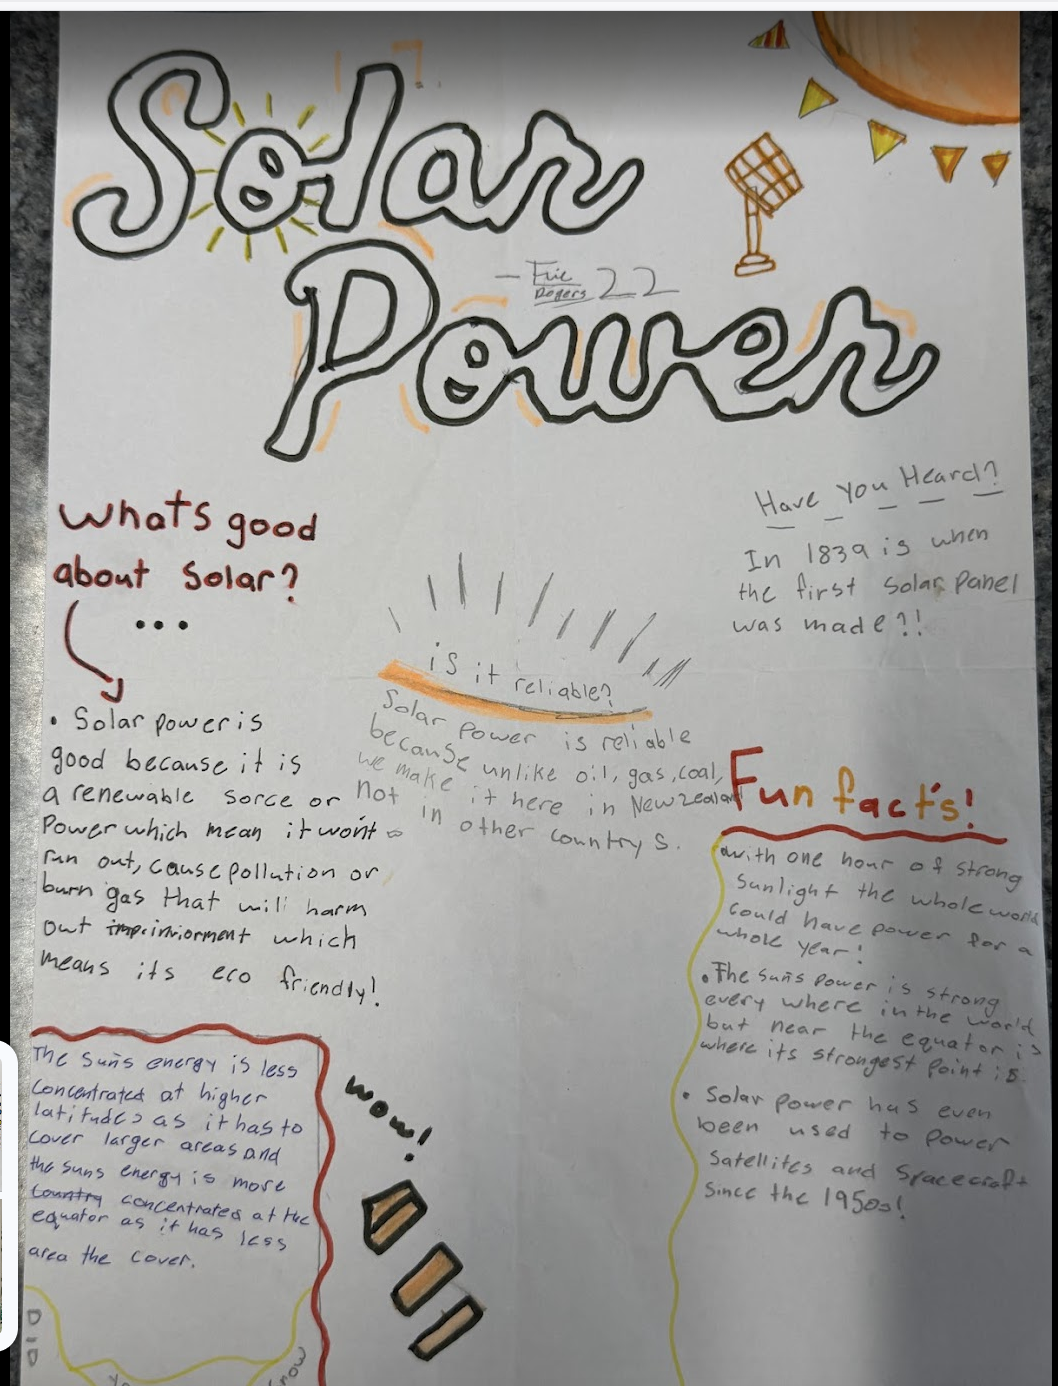 Solar
Power
22
Rogers
whats good
about Solar?
...
• Solar power is
good because it is
a renewable sorce or
Power which mean it wont
run out, cause pollution or
burn gas that will harm
out which
means its eco friendly!
is it reliable?
Solar Power is reliable
because unlike oil, gas, coal,
we make it here in New zealand
not in other country s.
Have You Heard?
In 1839 is when
the first Solar Panel
was made?!
Fun fact's!
with one hour of strong
Sunlight the whole world
could have power for a
whole year!
• The sun's power is strong
every where in the world
but near the equator is
where its strongest point is.
• Solar power has even
been used to power
Satellites and Spacecraft
since the 1950s!
The sun's energy is less
concentrated at higher
latitudes as it has to
cover larger areas and
the suns energy is more
country concentrated at the
equator as it has less
area the cover.
wow!
DID